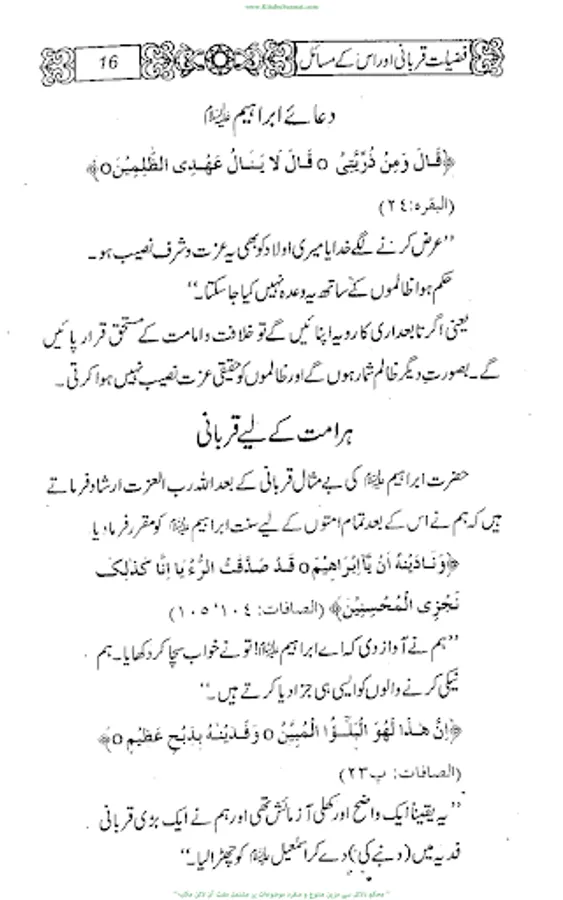 www.KitaboSunnat.com
فضیلت قربانی اور اس کے مسائل
16
دعائے ابراہیم علیہ السلام
﴿قَالَ وَمِنْ ذُرِّیَّتِیْ o قَالَ لَا یَنَالُ عَهْدِی الظّٰلِمِیْنَo﴾
(البقرہ:٢٤)
”عرض کرنے لگے خدایا میری اولاد کو بھی یہ عزت و شرف نصیب ہو۔
حکم ہوا ظالموں کے ساتھ یہ وعدہ نہیں کیا جا سکتا۔“
یعنی اگر تابعداری کا رویہ اپنائیں گے تو خلافت و امامت کے مستحق قرار پائیں
گے۔ بصورتِ دیگر ظالم شمار ہوں گے اور ظالموں کو حقیقی عزت نصیب نہیں ہوا کرتی۔
ہر امت کے لیے قربانی
حضرت ابراہیم علیہ السلام کی بے مثال قربانی کے بعد اللہ رب العزت ارشاد فرماتے
ہیں کہ ہم نے اس کے بعد تمام امتوں کے لیے سنت ابراہیم علیہ السلام کو مقرر فرما دیا
﴿وَنَادَیْنٰهُ اَنْ یّٰۤاِبْرَاهِیْمَo قَدْ صَدَّقْتَ الرُّءْیَا اِنَّا کَذٰلِکَ
نَجْزِی الْمُحْسِنِیْنَ﴾ (الصافات: ١٠٤‘١٠٥)
”ہم نے آواز دی کہ اے ابراہیم علیہ السلام! تو نے خواب سچا کر دکھایا۔ ہم
نیکی کرنے والوں کو ایسی ہی جزا دیا کرتے ہیں۔“
﴿اِنَّ هٰذَا لَهُوَ الْبَلٰٓؤُا الْمُبِیْنُ o وَفَدَیْنٰهُ بِذِبْحٍ عَظِیْمٍ o﴾
(الصافات: پ٢٣)
”یہ یقیناً ایک واضح اور کھلی آزمائش تھی اور ہم نے ایک بڑی قربانی
فدیہ میں (دنبے کی) دے کر اسمٰعیل علیہ السلام کو چھڑا لیا۔“
"محکم دلائل سے مزین متنوع و منفرد موضوعات پر مشتمل مفت آن لائن مکتبہ"